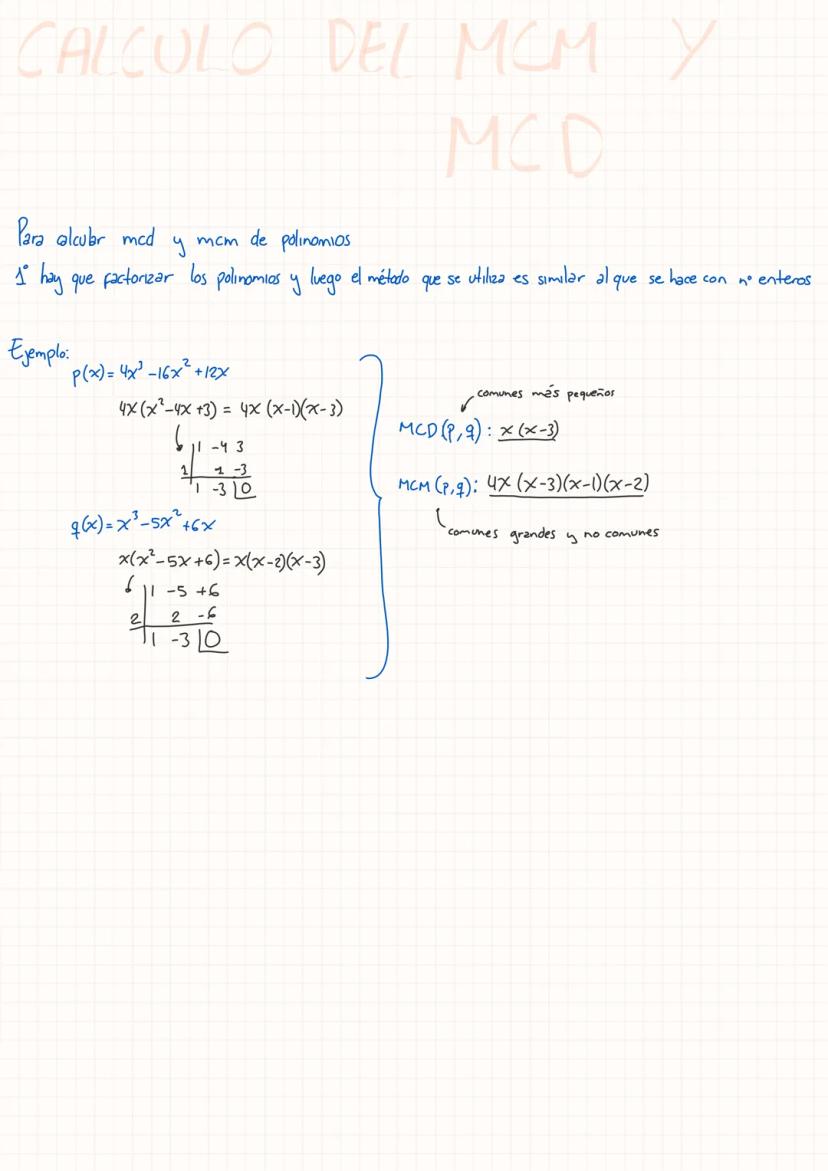 CALCULO DEL MCM Y
MCD
Para calcular mcd y mcm de polinomios
1º hay que factorizar los polinomios y luego el método que se utiliza es similar al que se hace con nº enteros
Ejemplo:
p(x) = 4x³ -16x² +12x
4x(x²-4x+3) = 4x(x-1)(x-3)
1 -4 3
1 1 -3
1 -3 0
q(x) = x³-5x²+6x
x(x²-5x+6) = x(x-2)(x-3)
1 -5 +6
2 2 -6
1 -3 0
comunes más pequeños
MCD(p,q): x(x-3)
MCM(p,q): 4x(x-3)(x-1)(x-2)
comunes grandes y no comunes